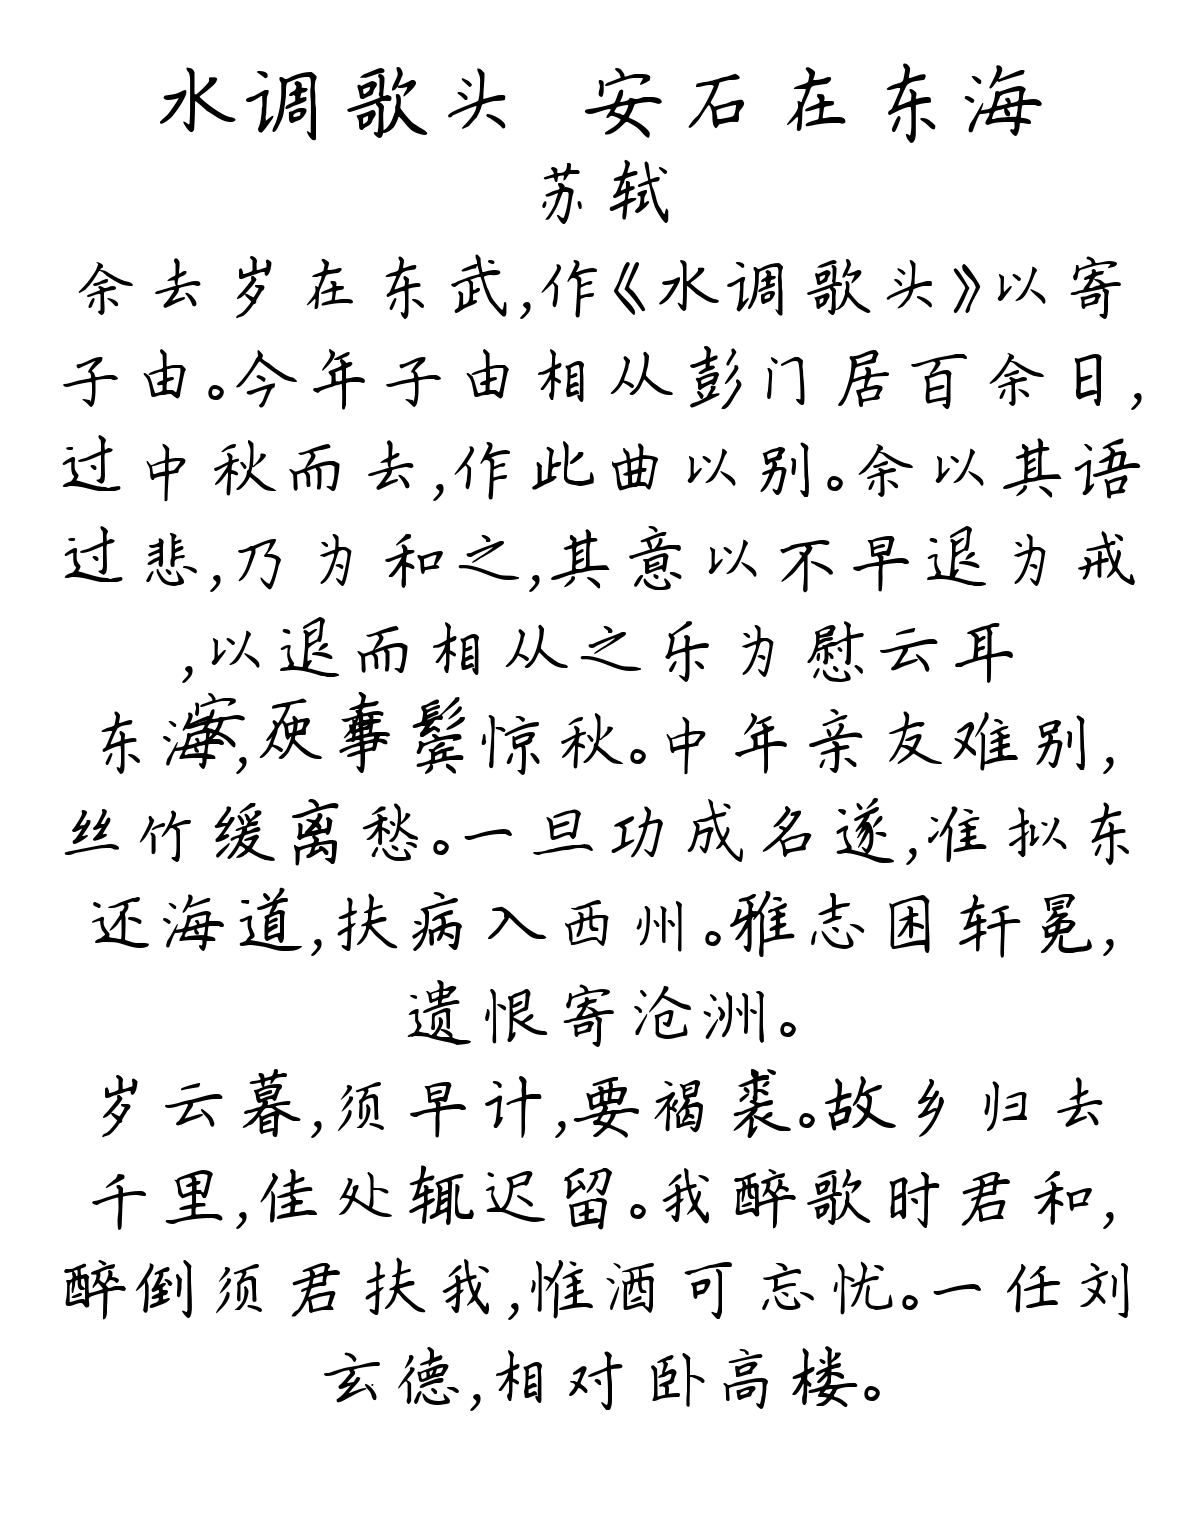 水调歌头 安石在东海
苏轼
余去岁在东武,作《水调歌头》以寄
子由。今年子由相从彭门居百余日,
过中秋而去,作此曲以别。余以其语
过悲,乃为和之,其意以不早退为戒
,以退而相从之乐为慰云耳
安石在
东海,从事鬓惊秋。中年亲友难别,
丝竹缓离愁。一旦功成名遂,准拟东
还海道,扶病入西州。雅志困轩冕,
遗恨寄沧洲。
岁云暮,须早计,要褐裘。故乡归去
千里,佳处辄迟留。我醉歌时君和,
醉倒须君扶我,惟酒可忘忧。一任刘
玄德,相对卧高楼。